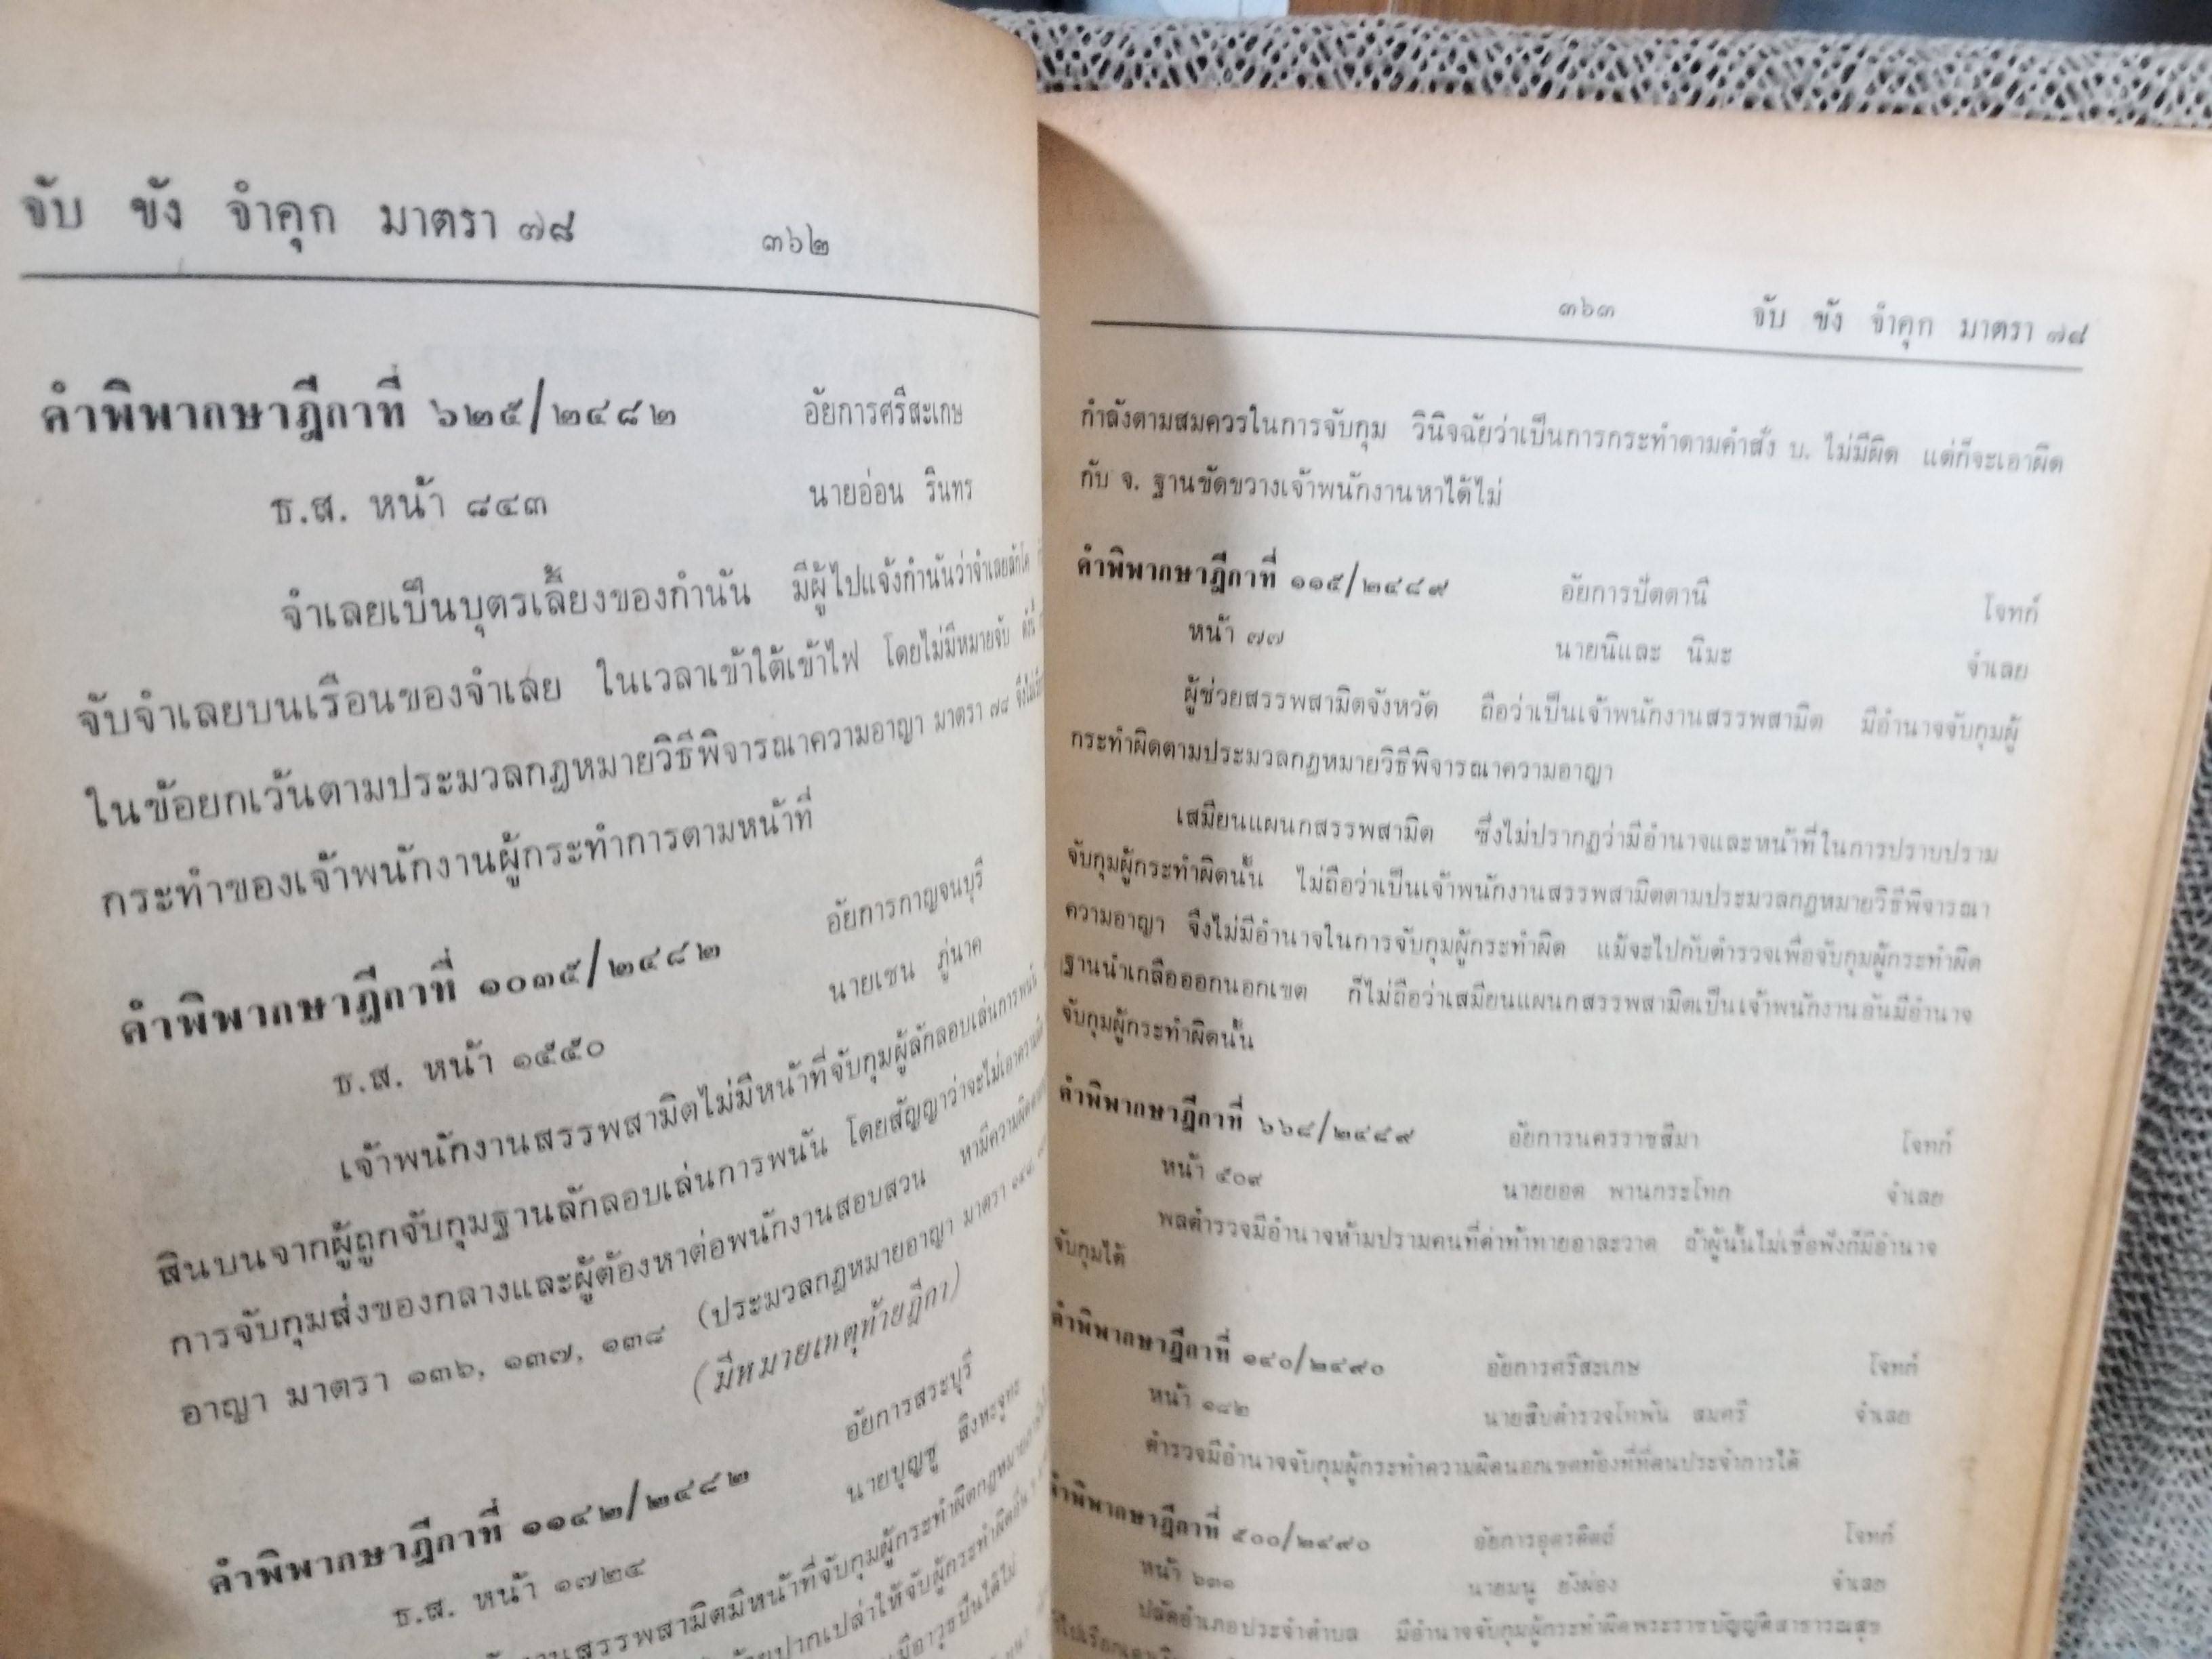 จับ ขัง จำคุก มาตรา ๗๘ ๓๖๒
คำพิพากษาฎีกาที่ ๖๒๕/๒๔๘๒ อัยการศรีสะเกษ
ธ.ส. หน้า ๘๔๓ นายอ่อน รินทร
จำเลยเป็นบุตรเลี้ยงของกำนัน มีผู้ไปแจ้งกำนันว่าจำเลยลักโค
จับจำเลยบนเรือนของจำเลย ในเวลาเข้าใต้เข้าไฟ โดยไม่มีหมายจับ ดังนี้
ในข้อยกเว้นตามประมวลกฎหมายวิธีพิจารณาความอาญา มาตรา ๗๘
กระทำของเจ้าพนักงานผู้กระทำการตามหน้าที่
คำพิพากษาฎีกาที่ ๑๐๓๕/๒๔๘๒ อัยการกาญจนบุรี
ธ.ส. หน้า ๑๕๕๐ นายเซน ภู่นาค
เจ้าพนักงานสรรพสามิตไม่มีหน้าที่จับกุมผู้ลักลอบเล่นการพนัน
สินบนจากผู้ถูกจับกุมฐานลักลอบเล่นการพนัน โดยสัญญาว่าจะไม่เอาความผิด
การจับกุมส่งของกลางและผู้ต้องหาต่อพนักงานสอบสวน หามีความผิด
อาญา มาตรา ๑๓๖, ๑๓๗, ๑๓๘ (ประมวลกฎหมายอาญา มาตรา
(มีหมายเหตุท้ายฎีกา)
คำพิพากษาฎีกาที่ ๑๑๔๒/๒๔๘๒ อัยการสระบุรี
ธ.ส. หน้า ๑๗๒๔ นายบุญชู สิงหะจูฑะ
งานสรรพสามิตมีหน้าที่จับกุมผู้กระทำผิดกฎหมาย
ปากเปล่าให้จับผู้กระทำผิดอื่น ๆ
มีอาวุธปืนได้ไม่
๓๖๓ จับ ขัง จำคุก มาตรา ๗๘
กำลังตามสมควรในการจับกุม วินิจฉัยว่าเป็นการกระทำตามคำสั่ง บ. ไม่มีผิด แต่ก็จะเอาผิด
กับ จ. ฐานขัดขวางเจ้าพนักงานหาได้ไม่
คำพิพากษาฎีกาที่ ๑๑๕/๒๔๘๙ อัยการปัตตานี โจทก์
หน้า ๗๗ นายนิและ นิมะ จำเลย
ผู้ช่วยสรรพสามิตจังหวัด ถือว่าเป็นเจ้าพนักงานสรรพสามิต มีอำนาจจับกุมผู้
กระทำผิดตามประมวลกฎหมายวิธีพิจารณาความอาญา
เสมียนแผนกสรรพสามิต ซึ่งไม่ปรากฏว่ามีอำนาจและหน้าที่ในการปราบปราม
จับกุมผู้กระทำผิดนั้น ไม่ถือว่าเป็นเจ้าพนักงานสรรพสามิตตามประมวลกฎหมายวิธีพิจารณา
ความอาญา จึงไม่มีอำนาจในการจับกุมผู้กระทำผิด แม้จะไปกับตำรวจเพื่อจับกุมผู้กระทำผิด
ฐานนำเกลือออกนอกเขต ก็ไม่ถือว่าเสมียนแผนกสรรพสามิตเป็นเจ้าพนักงานอันมีอำนาจ
จับกุมผู้กระทำผิดนั้น
คำพิพากษาฎีกาที่ ๖๖๘/๒๔๘๙ อัยการนครราชสีมา โจทก์
หน้า ๕๐๙ นายยอด พานกระโทก จำเลย
พลตำรวจมีอำนาจห้ามปรามคนที่ด่าท้าทายอาละวาด ถ้าผู้นั้นไม่เชื่อฟังก็มีอำนาจ
จับกุมได้
คำพิพากษาฎีกาที่ ๑๔๐/๒๔๙๐ อัยการศรีสะเกษ โจทก์
หน้า ๑๘๒ นายสิบตำรวจโทพัน สมศรี จำเลย
ตำรวจมีอำนาจจับกุมผู้กระทำความผิดนอกเขตท้องที่ที่ตนประจำการได้
คำพิพากษาฎีกาที่ ๕๐๐/๒๔๙๐ อัยการอุตรดิตถ์ โจทก์
หน้า ๖๓๑ นายมนู ยังผ่อง จำเลย
ปลัดอำเภอประจำตำบล มีอำนาจจับกุมผู้กระทำผิดพระราชบัญญัติสาธารณสุข